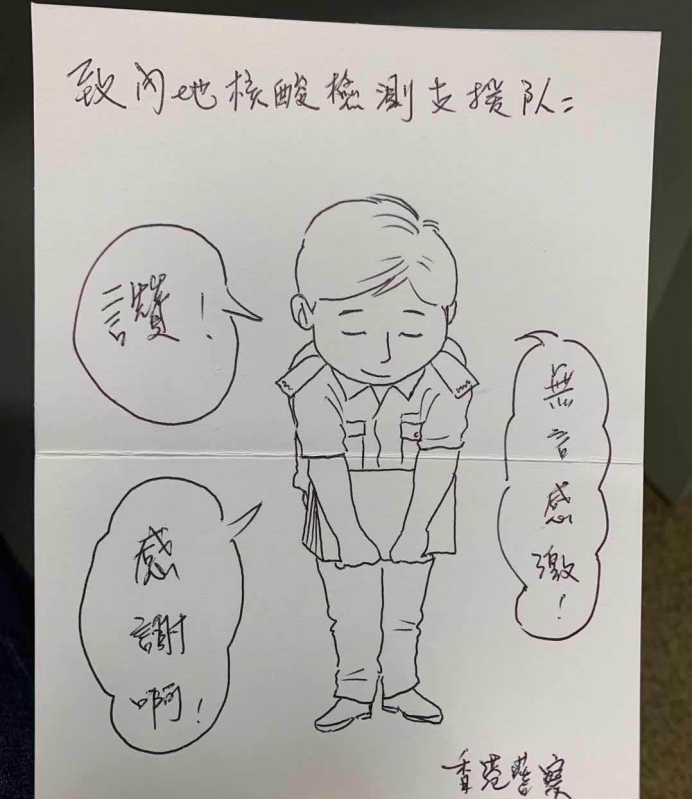 致內地核酸檢測支援队：
讚！
無言感激！
感謝啊！
香港警察